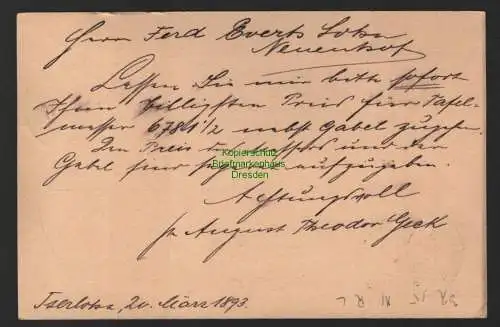 Herrn Ferd Everts Sohn
Neuenhof
Lassen Sie mir bitte sofort
Ihren billigsten Preis für Tafel-
messer 678 1/2 nebst Gabel zugehen.
Den Preis des Messers und der
Gabel für aufzugeben.
Kopierschutz
Briefmarkenhaus
Dresden
Achtungsvoll
pr August Theodor Geck
Iserlohn, 20. März 1893.